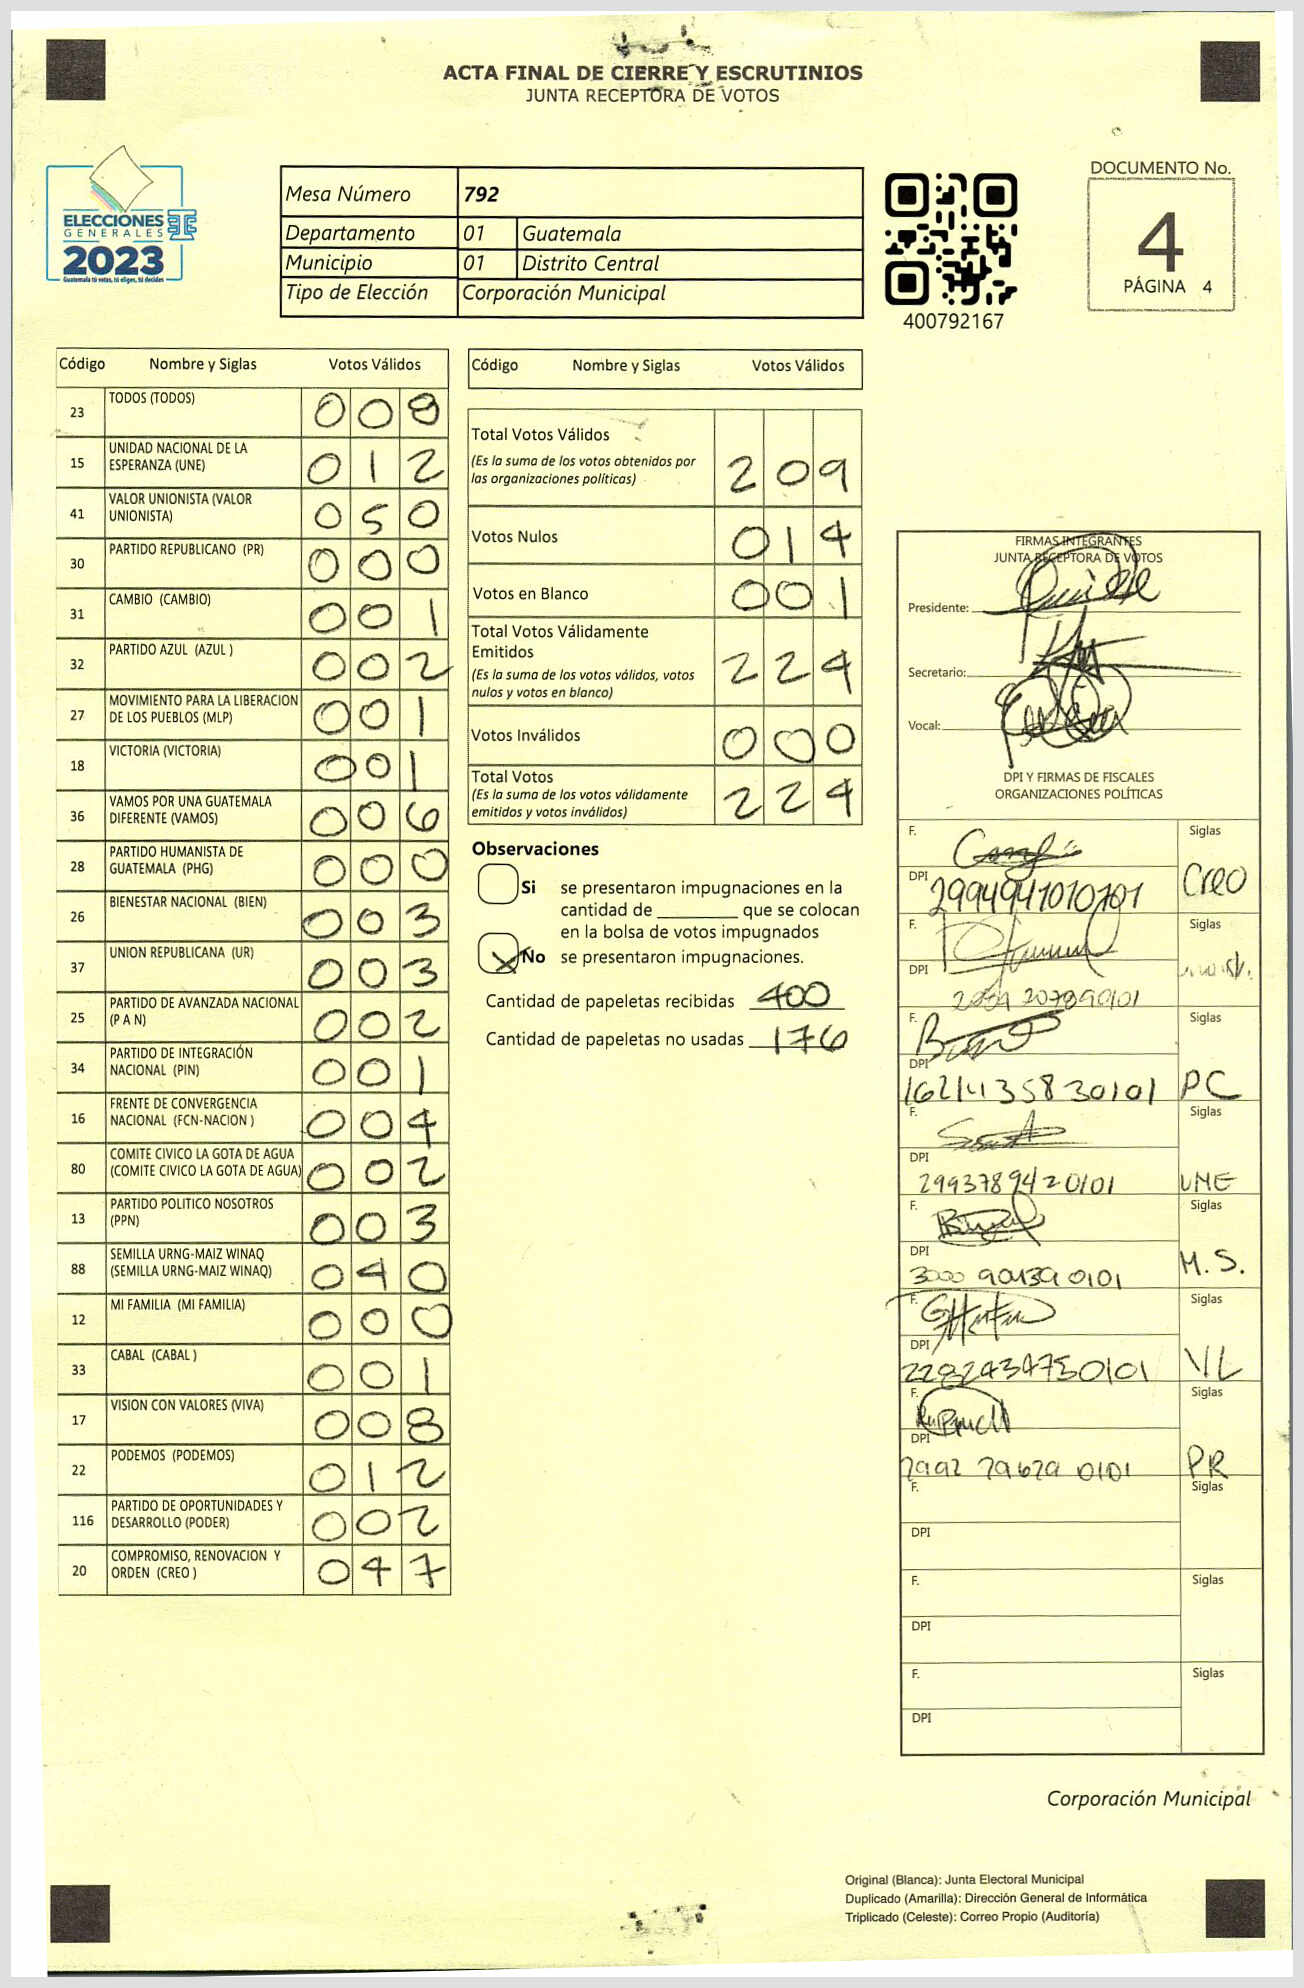 ACTA FINAL DE CIERRE Y ESCRUTINIOS
JUNTA RECEPTORA DE VOTOS
ELECCIONES
GENERALES
2023
Guatemala tú votas, tú eliges, tú decides
Mesa Número 792
Departamento 01 Guatemala
Municipio 01 Distrito Central
Tipo de Elección Corporación Municipal
400792167
DOCUMENTO No.
4
PÁGINA 4
Código Nombre y Siglas Votos Válidos
23 TODOS (TODOS) 008
15 UNIDAD NACIONAL DE LA
ESPERANZA (UNE) 012
41 VALOR UNIONISTA (VALOR
UNIONISTA) 050
30 PARTIDO REPUBLICANO (PR) 000
31 CAMBIO (CAMBIO) 001
32 PARTIDO AZUL (AZUL ) 002
27 MOVIMIENTO PARA LA LIBERACION
DE LOS PUEBLOS (MLP) 001
18 VICTORIA (VICTORIA) 001
36 VAMOS POR UNA GUATEMALA
DIFERENTE (VAMOS) 006
28 PARTIDO HUMANISTA DE
GUATEMALA (PHG) 000
26 BIENESTAR NACIONAL (BIEN) 003
37 UNION REPUBLICANA (UR) 003
25 PARTIDO DE AVANZADA NACIONAL
(P A N) 002
34 PARTIDO DE INTEGRACIÓN
NACIONAL (PIN) 001
16 FRENTE DE CONVERGENCIA
NACIONAL (FCN-NACION ) 004
80 COMITE CIVICO LA GOTA DE AGUA
(COMITE CIVICO LA GOTA DE AGUA) 002
13 PARTIDO POLITICO NOSOTROS
(PPN) 003
88 SEMILLA URNG-MAIZ WINAQ
(SEMILLA URNG-MAIZ WINAQ) 040
12 MI FAMILIA (MI FAMILIA) 000
33 CABAL (CABAL ) 001
17 VISION CON VALORES (VIVA) 008
22 PODEMOS (PODEMOS) 012
116 PARTIDO DE OPORTUNIDADES Y
DESARROLLO (PODER) 002
20 COMPROMISO, RENOVACION Y
ORDEN (CREO ) 047
Código Nombre y Siglas Votos Válidos
Total Votos Válidos
(Es la suma de los votos obtenidos por
las organizaciones políticas) 209
Votos Nulos 014
Votos en Blanco 001
Total Votos Válidamente
Emitidos
(Es la suma de los votos válidos, votos
nulos y votos en blanco) 224
Votos Inválidos 000
Total Votos
(Es la suma de los votos válidamente
emitidos y votos inválidos) 224
Observaciones
Si se presentaron impugnaciones en la
cantidad de ________ que se colocan
en la bolsa de votos impugnados
X No se presentaron impugnaciones.
Cantidad de papeletas recibidas 400
Cantidad de papeletas no usadas 176
FIRMAS INTEGRANTES
JUNTA RECEPTORA DE VOTOS
Presidente:
Secretario:
Vocal:
DPI Y FIRMAS DE FISCALES
ORGANIZACIONES POLÍTICAS
F. Siglas
DPI Creo
F. Siglas
DPI
F. Siglas
DPI PC
F. Siglas
DPI 2993789420101 UNE
F. Siglas
DPI M.S.
F. Siglas
DPI 2282434750101 VL
F. Siglas
DPI 2992 79679 0101 PR
F. Siglas
DPI
F. Siglas
DPI
F. Siglas
DPI
Corporación Municipal
Original (Blanca): Junta Electoral Municipal
Duplicado (Amarilla): Dirección General de Informática
Triplicado (Celeste): Correo Propio (Auditoría)